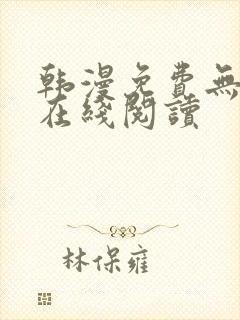 韩漫免费無
在綫閱讀
林保雍